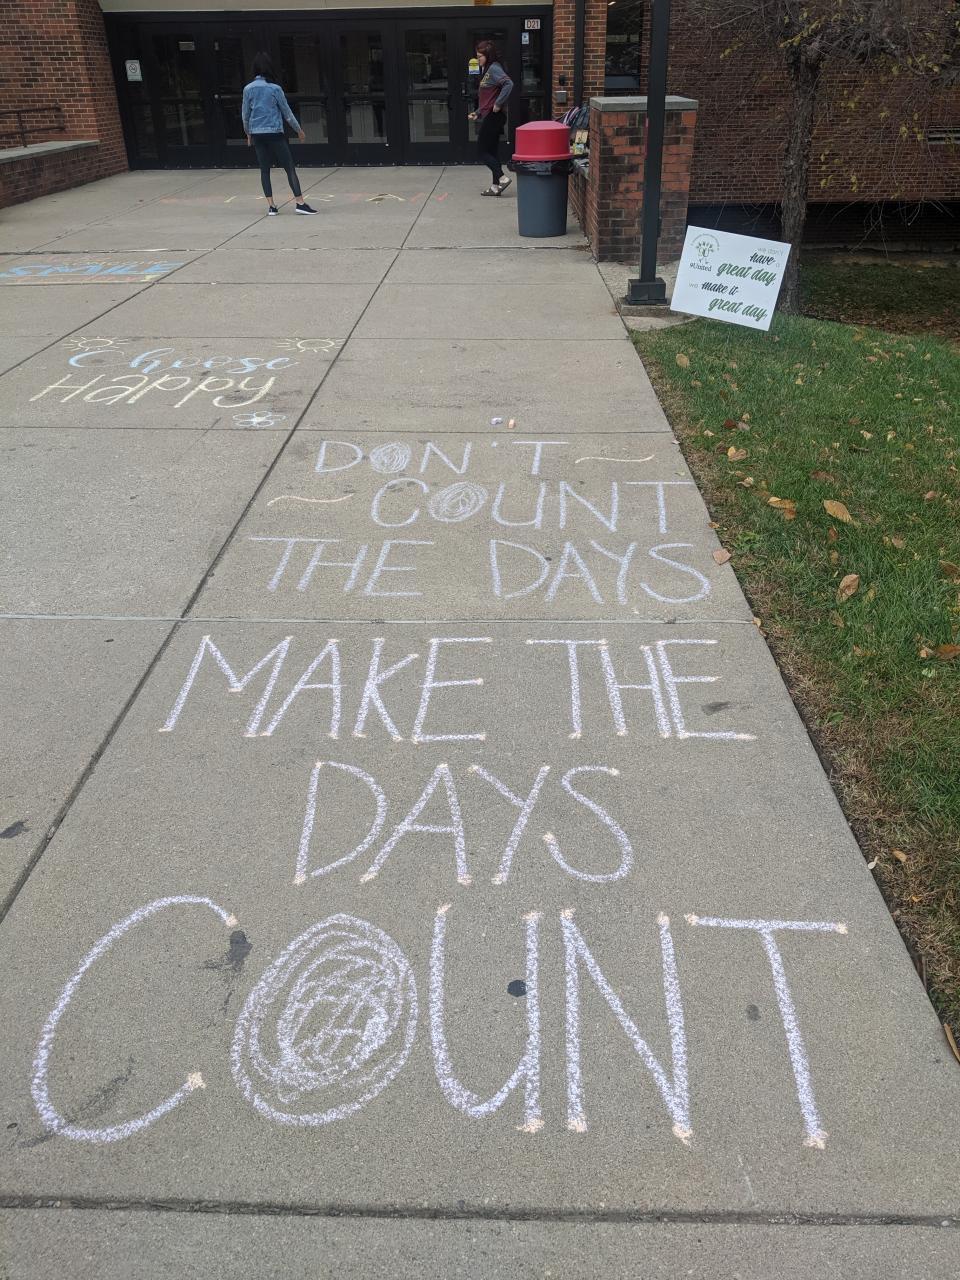 D21
SMILE
Choose
Happy
we don't
have a
great day
we make it
great day.
9United
DON'T
COUNT
THE DAYS
MAKE THE
DAYS
COUNT